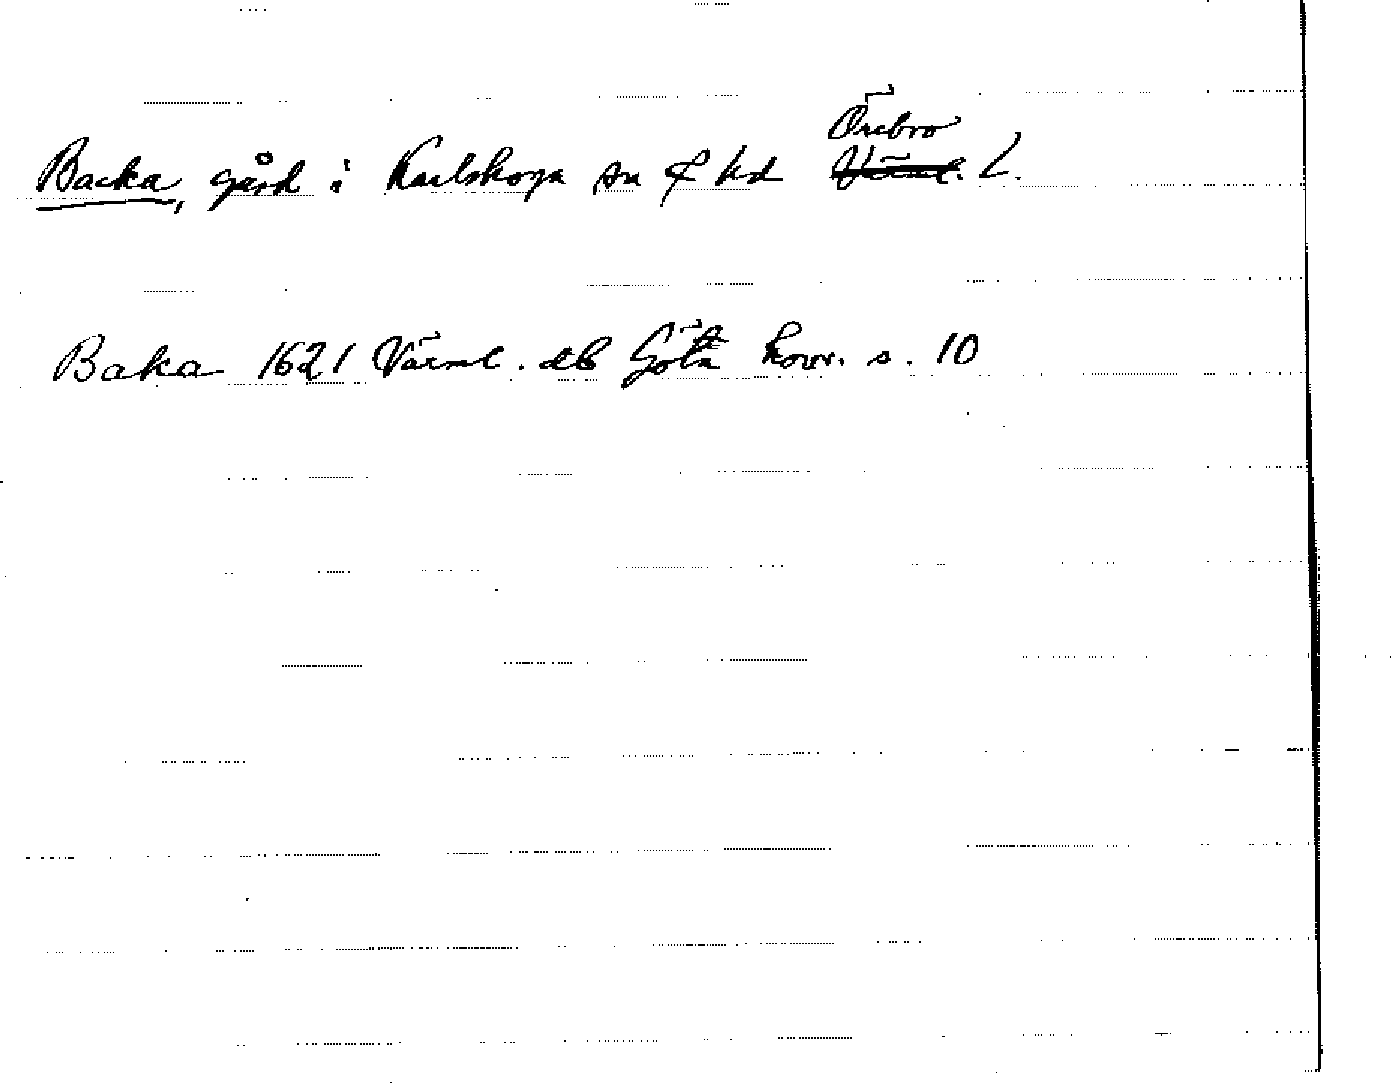 Örebro
Backa, gård i Karlskoga sn & hd Värml. L.
Baka 1621 Värml. db Göta hovr. s. 10